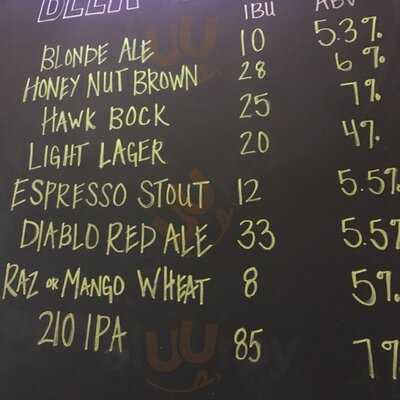 BEER IBU ABV
BLONDE ALE 10 5.3%
HONEY NUT BROWN 28 6%
HAWK BOCK 25 7%
LIGHT LAGER 20 4%
ESPRESSO STOUT 12 5.5%
DIABLO RED ALE 33 5.5%
RAZ OR MANGO WHEAT 8 5%
210 IPA 85 7%